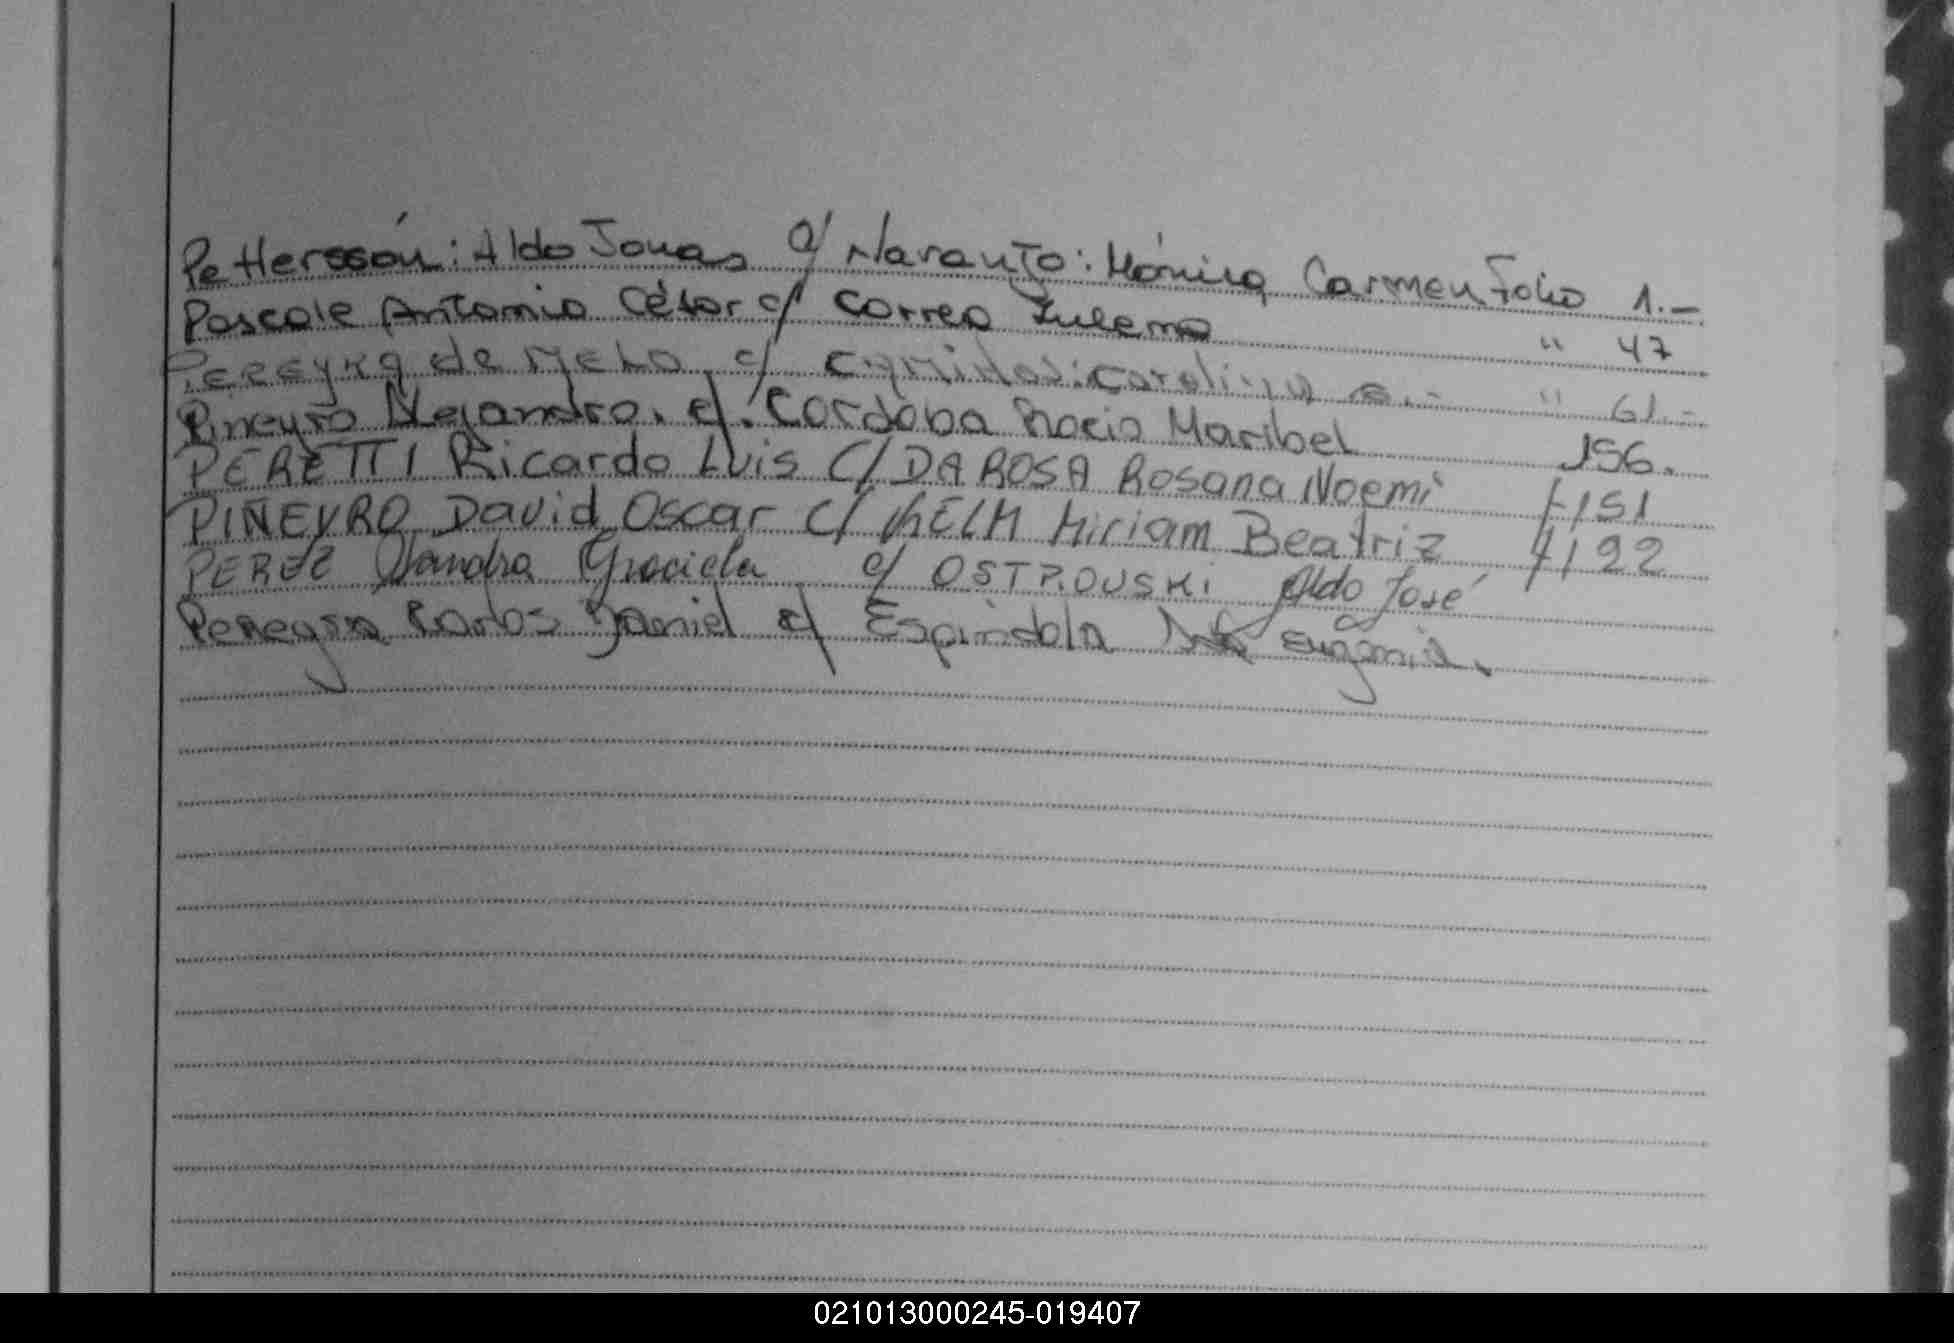 Petterssón: Aldo Jonas c/ Naranjo: Mónica Carmen Folio 1.-
Pascale Antonio César c/ Correa Zulema " 47
Pereyra de Melo c/ Carolina " 61.-
Pineyro Alejandro. c/. Cordoba Rocio Maribel 156.
PERETTI Ricardo Luis C/ DA ROSA Rosana Noemi F 151
PIÑEYRO David Oscar C/ KELM Miriam Beatriz F 122
PEREZ Sandra Graciela c/ OSTROUSKI Aldo José
Pereyra Carlos Daniel c/ Espindola Eugenia.
021013000245-019407